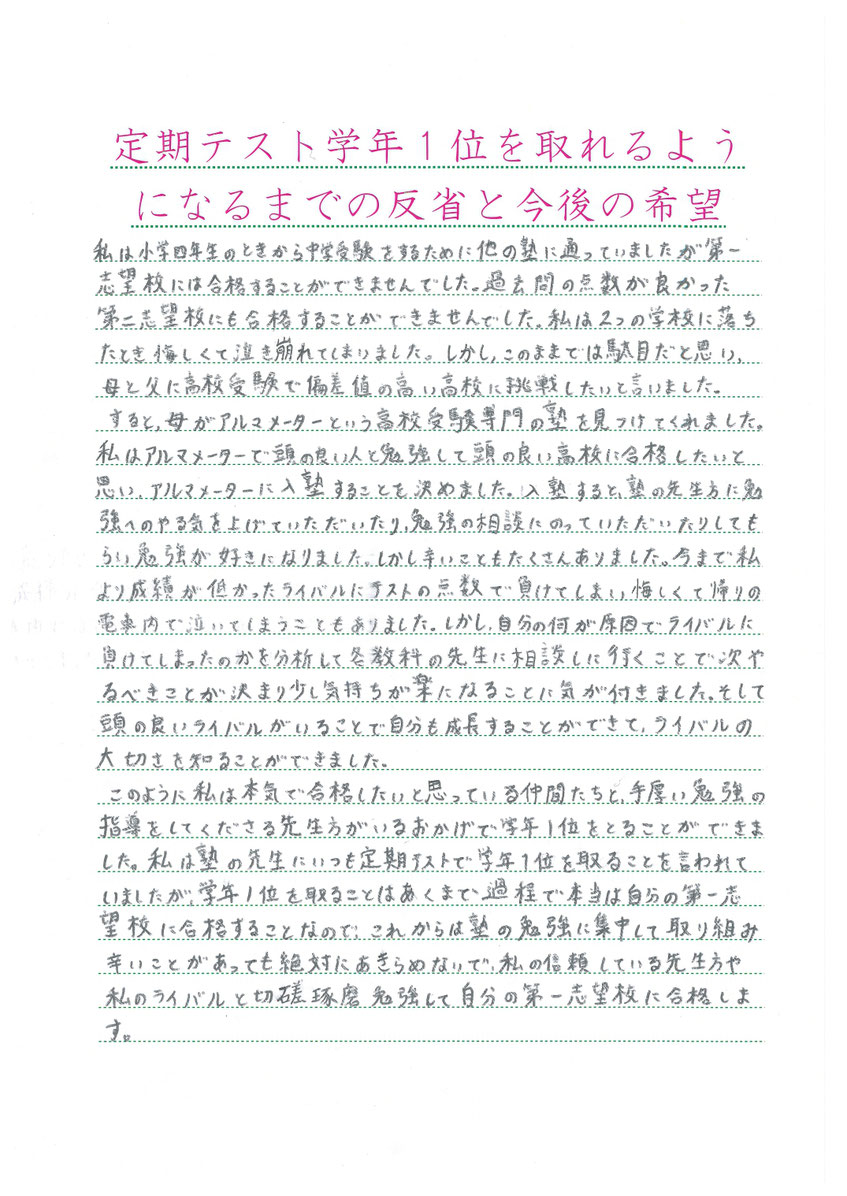 定期テスト学年1位を取れるよう
になるまでの反省と今後の希望
私は小学四年生のときから中学受験をするために他の塾に通っていましたが第一
志望校には合格することができませんでした。過去問の点数が良かった
第二志望校にも合格することができませんでした。私は2つの学校に落ち
たとき悔しくて泣き崩れてしまいました。しかし、このままでは駄目だと思い、
母と父に高校受験で偏差値の高い高校に挑戦したいと言いました。
すると、母がアルマメーターという高校受験専門の塾を見つけてくれました。
私はアルマメーターで頭の良い人と勉強して頭の良い高校に合格したいと
思い、アルマメーターに入塾することを決めました。入塾すると、塾の先生方に勉
強へのやる気を上げていただいたり、勉強の相談にのっていただいたりしても
らい勉強が好きになりました。しかし辛いこともたくさんありました。今まで私
より成績が低かったライバルにテストの点数で負けてしまい悔しくて帰りの
電車内で泣いてしまうこともありました。しかし、自分の何が原因でライバルに
負けてしまったのかを分析して各教科の先生に相談しに行くことで次や
るべきことが決まり少し気持ちが楽になることに気が付きました。そして
頭の良いライバルがいることで自分も成長することができて、ライバルの
大切さを知ることができました。
このように私は本気で合格したいと思っている仲間たちと、手厚い勉強の
指導をしてくださる先生方がいるおかげで学年1位をとることができま
した。私は塾の先生にいつも定期テストで学年1位を取ることを言われて
いましたが、学年1位を取ることはあくまで過程で本当は自分の第一志
望校に合格することなので、これからは塾の勉強に集中して取り組み
辛いことがあっても絶対にあきらめないで、私の信頼している先生方や
私のライバルと切磋琢磨勉強して自分の第一志望校に合格しま
す。